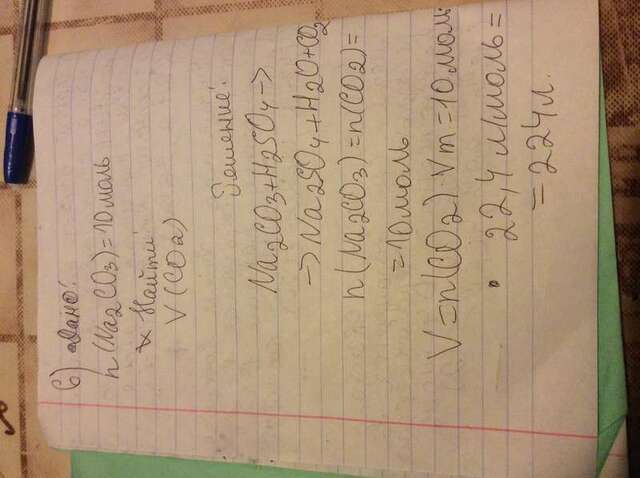 6) Дано:
n(Na2CO3)=10 моль
Найти
V(CO2)
Решение:
Na2CO3+H2SO4→
→Na2SO4+H2O+CO2
n(Na2CO3)=n(CO2)=
=10 моль
V=n(CO2)·Vm=10 моль
· 22,4 л/моль=
=224 л.